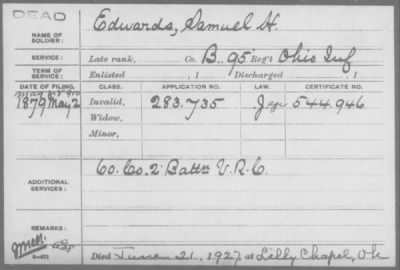 DEAD
NAME OF SOLDIER: Edwards, Samuel H.
SERVICE: Late rank, Co. B., 95 Reg't Ohio Inf
TERM OF SERVICE: Enlisted , 1 Discharged , 1
DATE OF FILING. CLASS. APPLICATION NO. LAW. CERTIFICATE NO.
1879 May 2 Invalid, 283.735 544.946
Widow,
Minor,
ADDITIONAL SERVICES: 60. Co. 2" Batt'n V. R. C.
REMARKS:
Died June 21, 1927 at Lilly Chapel, Oh